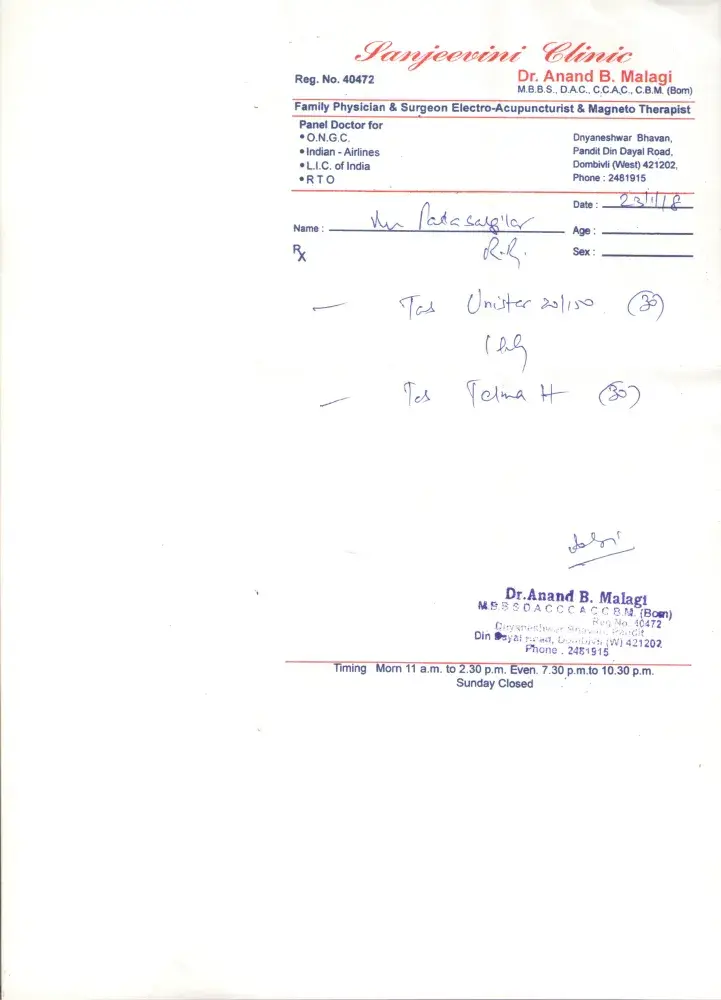 Sanjeevini Clinic
Reg. No. 40472
Dr. Anand B. Malagi
M.B.B.S., D.A.C., C.C.A.C., C.B.M. (Bom)
Family Physician & Surgeon Electro-Acupuncturist & Magneto Therapist
Panel Doctor for
• O.N.G.C.
• Indian - Airlines
• L.I.C. of India
• R T O
Dnyaneshwar Bhavan,
Pandit Din Dayal Road,
Dombivli (West) 421202,
Phone : 2481915
Date : 23/1/18
Name :
Age :
R.R.
Rx
Sex :
— Tab Unistar 20/150 (30)
— Tab Telma H (30)
Dr.Anand B. Malagi
M.B.B.S D A C C C A C C B.M. (Bom)
Reg No. 40472
Dnyaneshwar Bhavan, Pandit
Din Dayal Road, Dombivli (W) 421202
Phone . 2481915
Timing Morn 11 a.m. to 2.30 p.m. Even. 7.30 p.m.to 10.30 p.m.
Sunday Closed